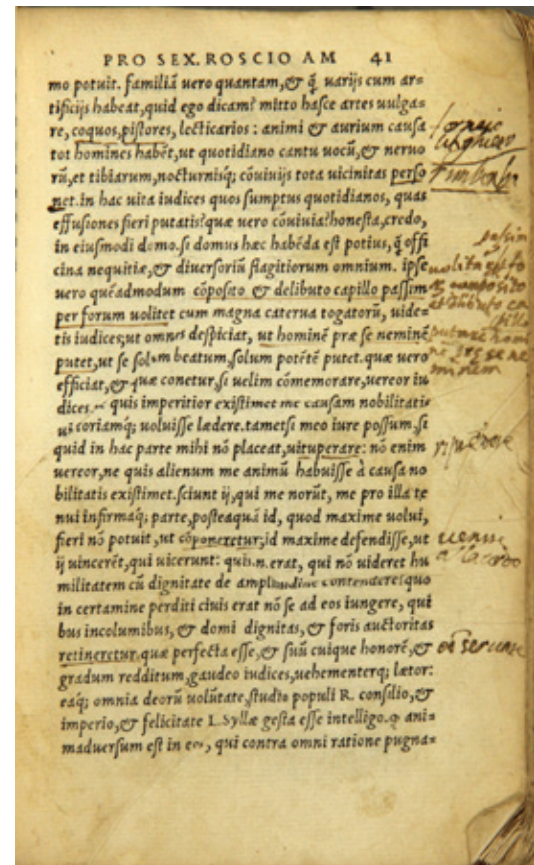 PRO SEX. ROSCIO AM 41
mo potuit. familiã uero quantam, & q̃ uarijs cum ar=
tificijs habeat, quid ego dicam? mitto hasce artes uulga=
re, coquos, pistores, lecticarios: animi & aurium causa
tot homines habẽt, ut quotidiano cantu uocũ, & neruo
rũ, et tibiarum, nocturnisq; cõuiuijs tota uicinitas perso
net. in hac uita iudices quos sumptus quotidianos, quas
effusiones fieri putatis? quæ uero cõuiuia? honesta, credo,
in eiusmodi domo. si domus hæc habẽda est potius, q̃ offi
cina nequitiæ, & diuersoriũ flagitiorum omnium. ipse
uero quẽadmodum cõposito & delibuto capillo passim
per forum uolitet cum magna caterua togatorũ, uide=
tis iudices, ut omnes despiciat, ut hominẽ præ se neminẽ
putet, ut se solum beatum, solum potẽtẽ putet. quæ uero
efficiat, & quæ conetur, si uelim cõmemorare, uereor iu
dices quis imperitior existimet me causam nobilitatis
uictoriamq; uoluisse lædere. tametsi meo iure possum, si
quid in hac parte mihi nõ placeat, uituperare: nõ enim
uereor, ne quis alienum me animũ habuisse à causa no
bilitatis existimet. sciunt ij, qui me norũt, me pro illa te
nui infirmaq; parte, posteaquã id, quod maxime uolui,
fieri nõ potuit, ut cõponeretur, id maxime defendisse, ut
ij uincerẽt, qui uicerunt: quis.n.erat, qui nõ uideret hu
militatem cũ dignitate de amplitudine contendere? quo
in certamine perditi ciuis erat nõ se ad eos iungere, qui
bus incolumibus, & domi dignitas, & foris auctoritas
retineretur. quæ perfecta esse, & suũ cuique honorẽ, &
gradum redditum, gaudeo iudices, uehementerq; lætor:
eaq; omnia deorũ uolũtate, studio populi R. consilio, &
imperio, & felicitate L. Syllæ gesta esse intelligo. ani=
maduersum est in eos, qui contra omni ratione pugna=
passim
uolitet
composito
capillo
putare